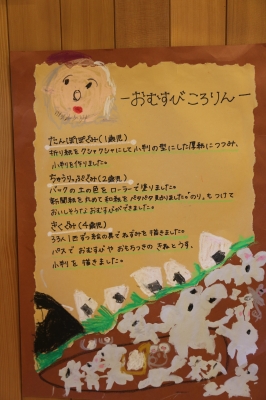 ーおむすびころりんー
たんぽぽぐみ(1歳児)
折り紙をクシャクシャにして小判の型にした厚紙につつみ、
小判を作りました。
ちゅうりっぷぐみ(2歳児)
バックの土の色をローラーで塗りました。
新聞紙を丸めて和紙をペタペタ貼りました。"のり"もつけて
おいしそうなおむすびができました。
きくぐみ(4歳児)
33人1匹ずつ絵の具でねずみを描きました。
パスでおむすびやおもちつきのきねとうす、
小判を描きました。